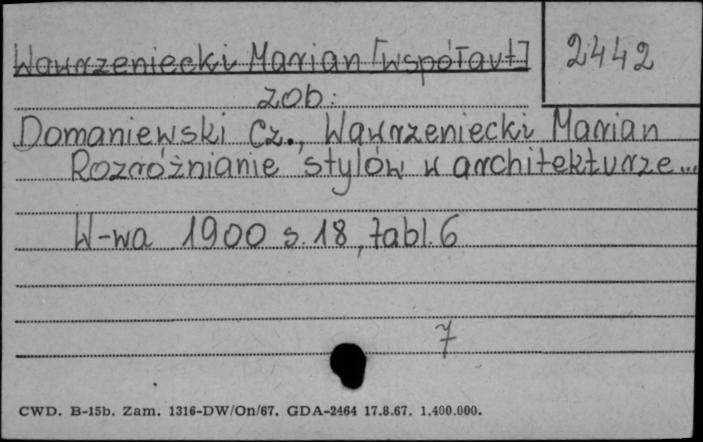 Wawrzeniecki Marian [współaut]
2442
zob:
Domaniewski Cz., Wawrzeniecki Marian
Rozróżnianie stylów w architekturze...
W-wa 1900 s. 18, tabl. 6
7
CWD. B-15b. Zam. 1316-DW/On/67. GDA-2464 17.8.67. 1.400.000.